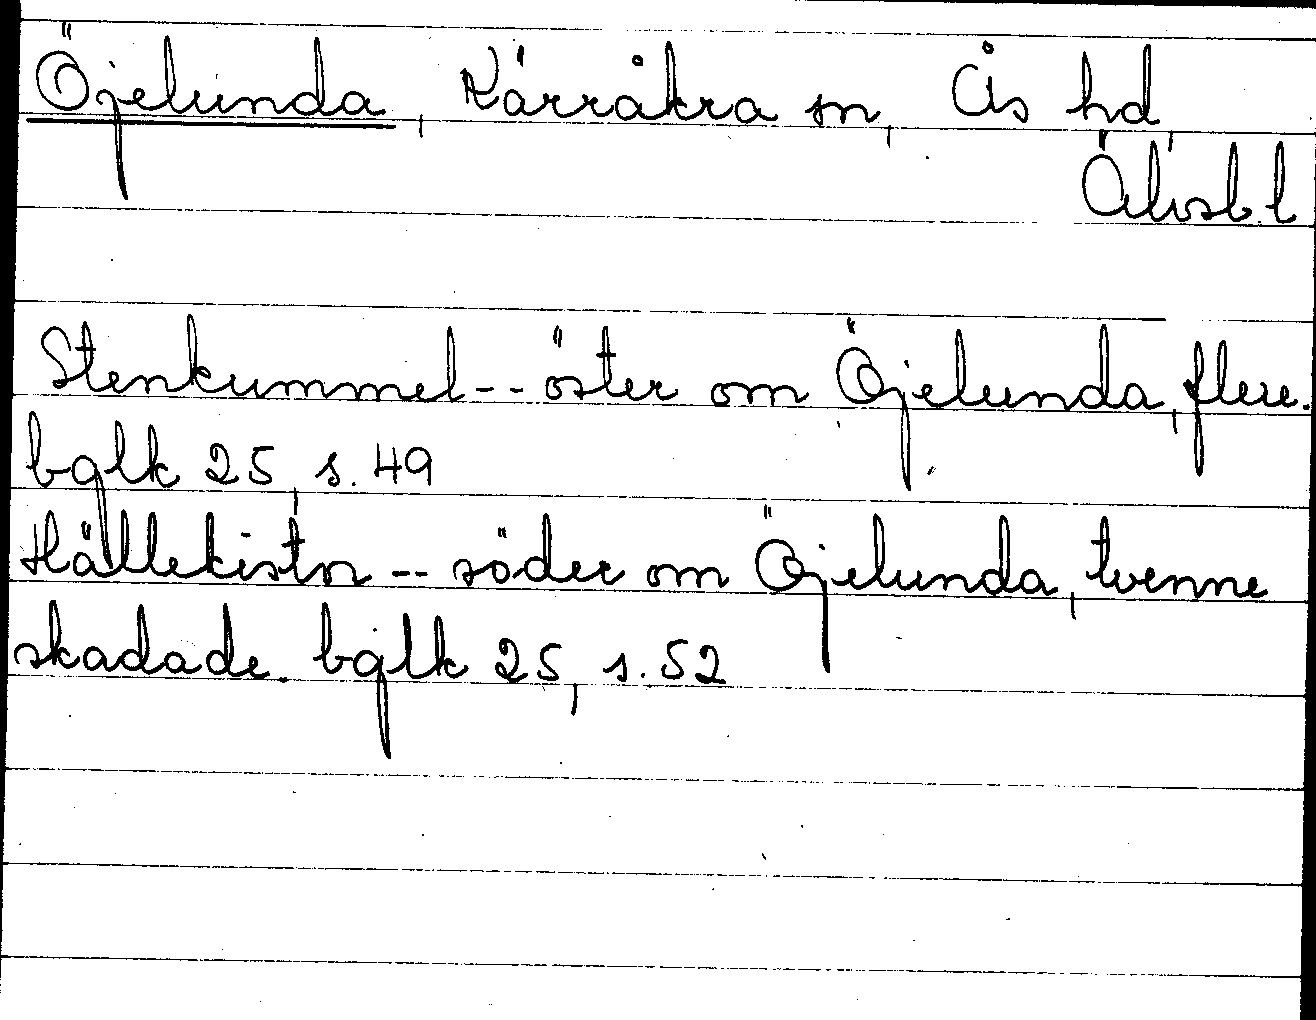 Öjelunda, Kärråkra sn, Ås hd,
Älvsb. l
Stenkummel -- öster om Öjelunda, flere.
bglk 25, s. 49
Hällekistn -- söder om Öjelunda, tvenne
skadade. bglk 25, s. 52